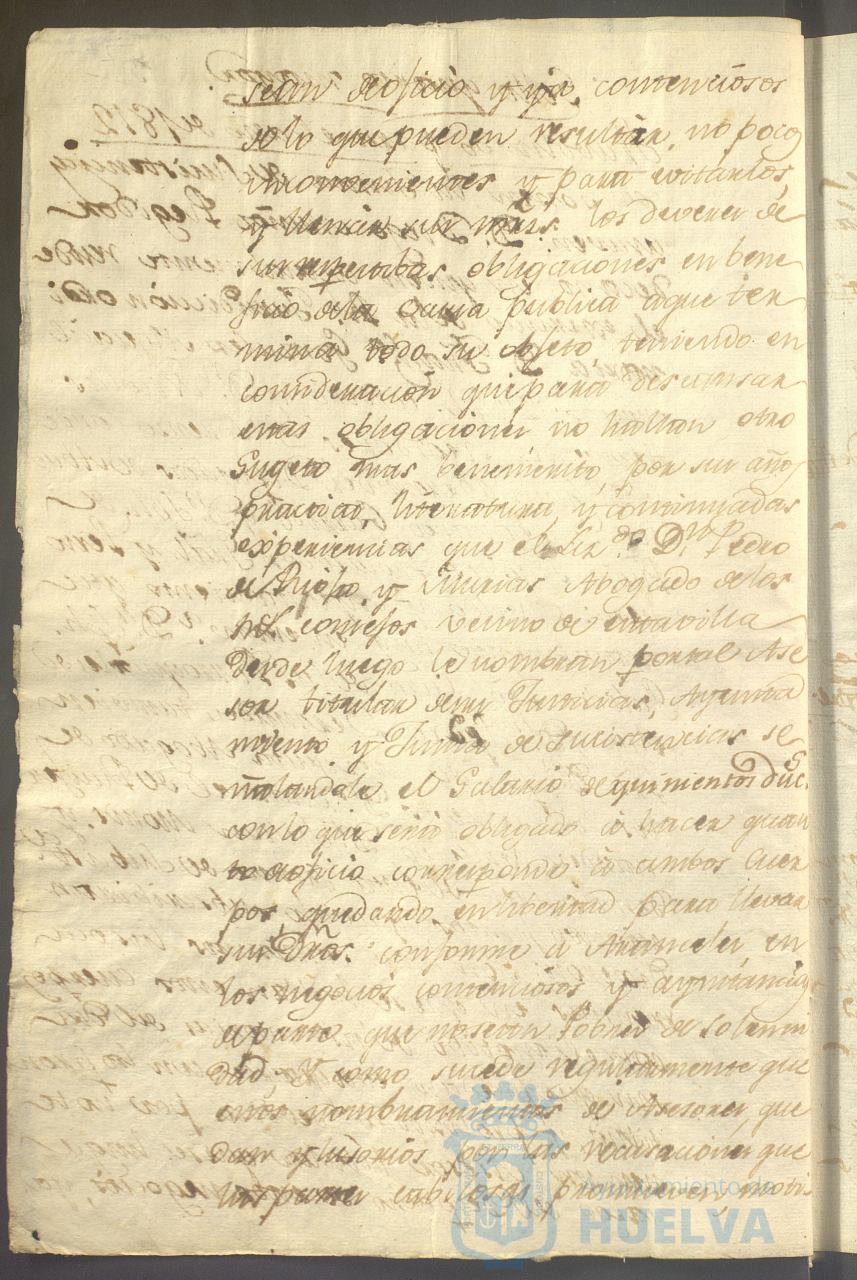 sean de oficio y ya contenciosos
solo que pueden resultar no pocos
inconvenientes y para evitarlos
y llenar sus mrds. los deveres de
sus respectibas obligaciones en bene
ficio dela Causa publica aque ter
mina todo su objeto teniendo en
concideracion que para descansar
estas obligaciones no hallan otro
Sugeto mas benemerito, por sus años
practica, literatura y continuadas
experiencias que el Liz.do Dn. Pedro
de Riofo y Murias Abogado delos
Rs. consejos vecino de esta villa
desde luego le nombran por tal Ase
sor titular de sus Justicias, Ayunta
miento y Junta de Sucistencias se
ñalandole el Salario de quinientos duc.s
con lo que será obligado á hacer quan
to de oficio corresponda á ambos Cuer
pos quedando en libertad para llevar
sus Dros. conforme á Aranceles en
los negocios contenciosos y á ynstancia
de parte que no sean Pobres de solemni
dad. Y como sucede regularmente que
estos nombramientos de Asesores que
dan ylusorios por las recusaciones que
las partes cabilosas promueven, moti
Ayuntamiento de
HUELVA